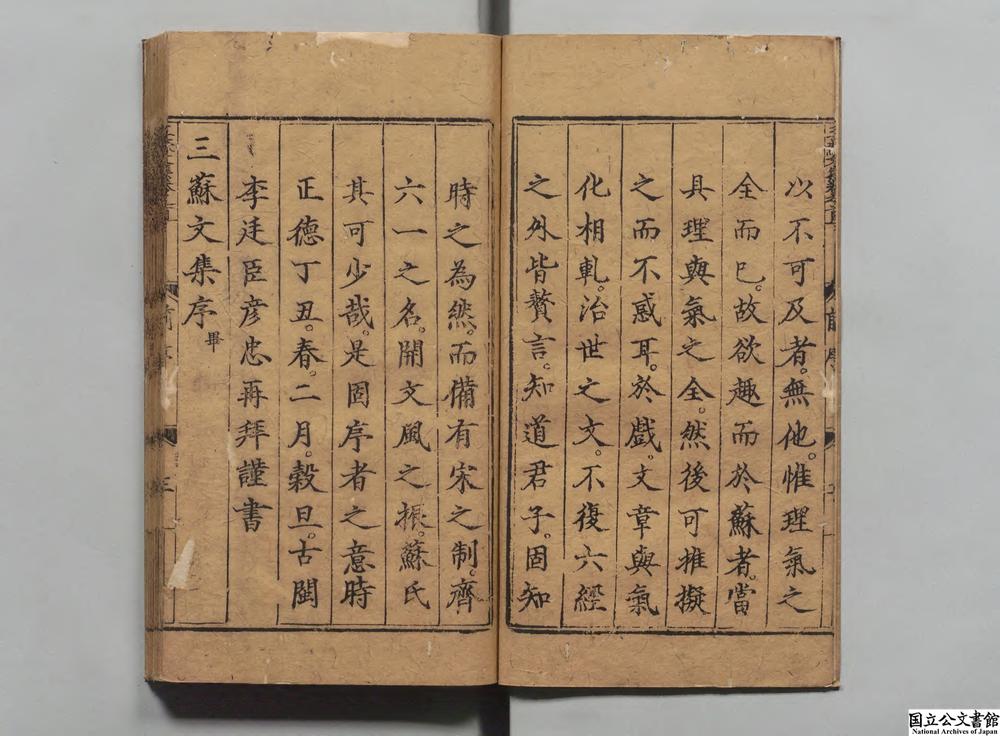 以不可及者。無他。惟理氣之
全而已。故欲趣而於蘇者。當
具理與氣之全。然後可推擬
之而不惑耳。於戲。文章與氣
化相軋。治世之文。不復六經
之外皆贅言。知道君子。固知
時之為然。而備有宋之制。齊
六一之名。開文風之振。蘇氏
其可少哉。是固序者之意時
正德丁丑。春。二月。穀旦。古閩
李廷臣彥忠再拜謹書
三蘇文集序畢
国立公文書館
National Archives of Japan